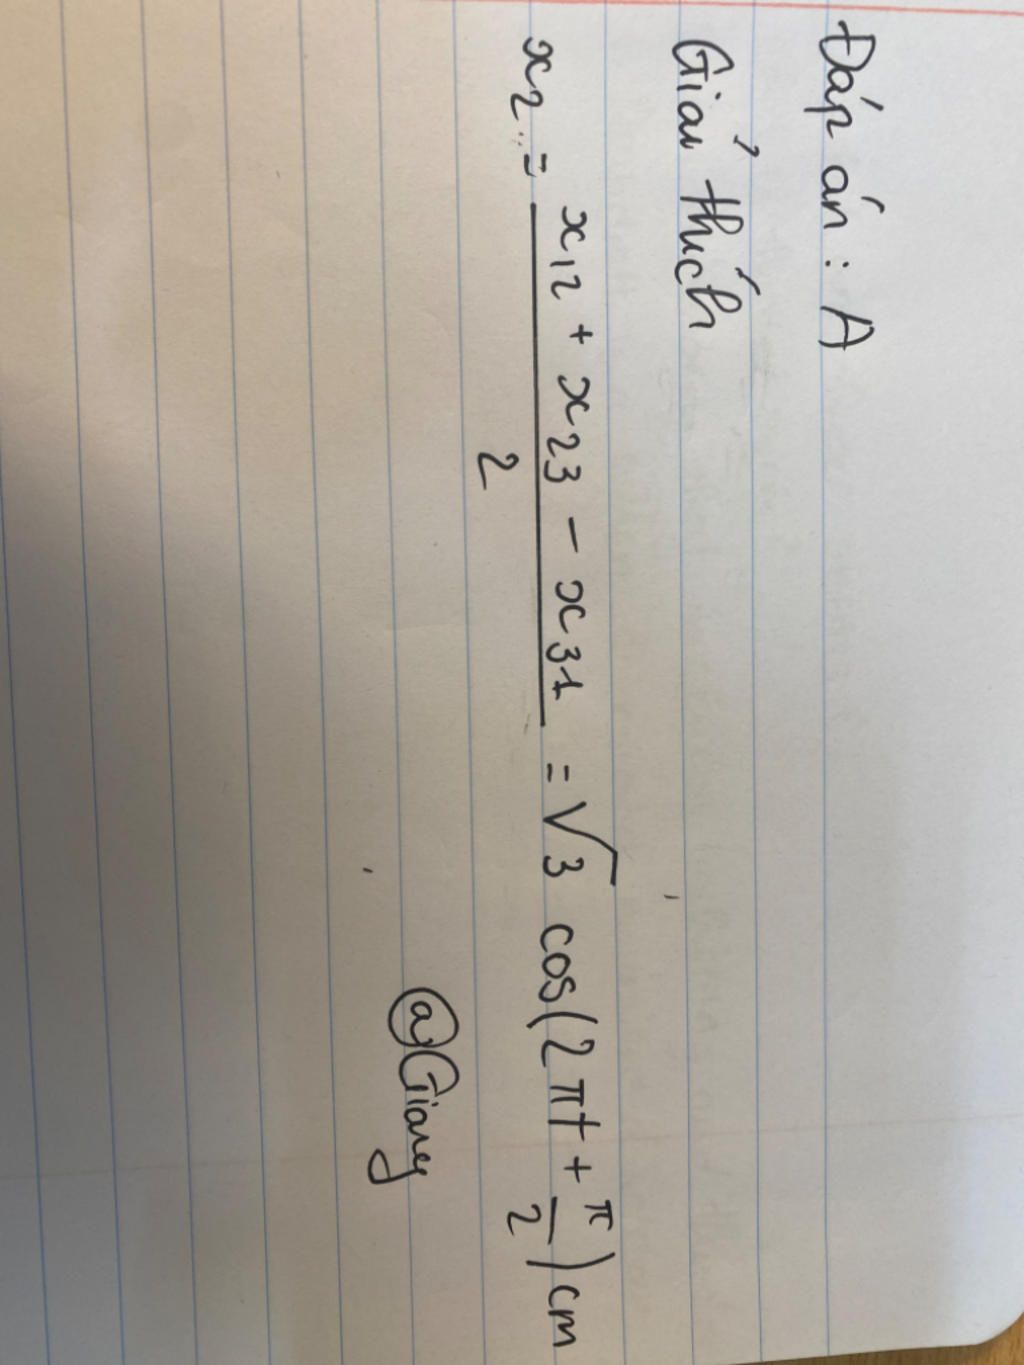 Đáp án : A
Giải thích
x₂ = (x₁₂ + x₂₃ - x₃₁)/2 = √3 cos(2πt + π/2) cm
@Giang